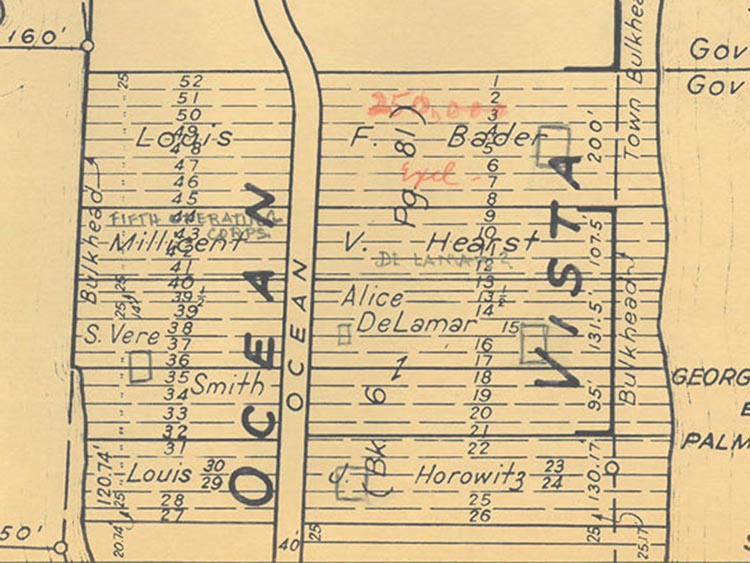 160'
Gov
Gov
Town Bulkhea
25
52
51
50
49
48
47
46
45
44
43
42
41
40
39½
39
38
37
36
35
34
33
32
31
30
29
28
27
1
2
3
4
5
6
7
8
9
10
12
13
13½
14
15
16
17
18
19
20
21
22
23
24
25
26
250,000
Louis F. Bader
Excl -
200'
Bulkhead
FIFTH OPERATING
CORPS.
Millicent V. Hearst
DE LAMAR?
107.5'
Alice
DeLamar
S. Vere
Smith
131.5'
Bulkhead
95'
Louis J. Horowitz
130.17'
120.74'
25
25
14'
25
20.74'
OCEAN VISTA
OCEAN
(Bk 6 Pg 81)
GEORG
PALM
50'
40'
25
25
25.17'